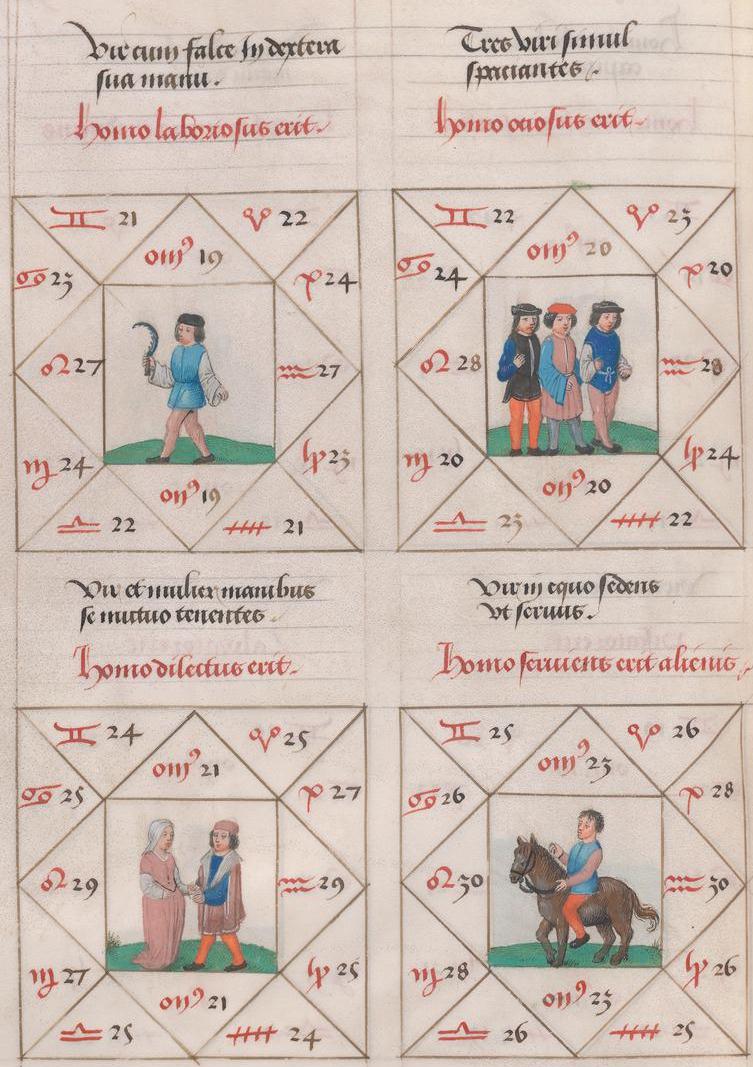 Vir cum falce in dextera
sua manu.
homo laboriosus erit.
♊ 21
♉ 22
19
♋ 23
24
♌ 27
♒ 27
♍ 24
23
19
♎ 22
21
Tres viri simul
spaciantes.
homo ociosus erit.
♊ 22
♉ 23
20
♋ 24
20
♌ 28
♒ 28
♍ 20
24
20
♎ 23
22
Vir et mulier manibus
se mutuo tenentes.
homo dilectus erit.
♊ 24
♉ 25
21
♋ 25
27
♌ 29
♒ 29
♍ 27
25
21
♎ 25
24
Vir in equo sedens
vt seruus.
homo seruiens erit alienis.
♊ 25
♉ 26
23
♋ 26
28
♌ 30
♒ 30
♍ 28
26
23
♎ 26
25